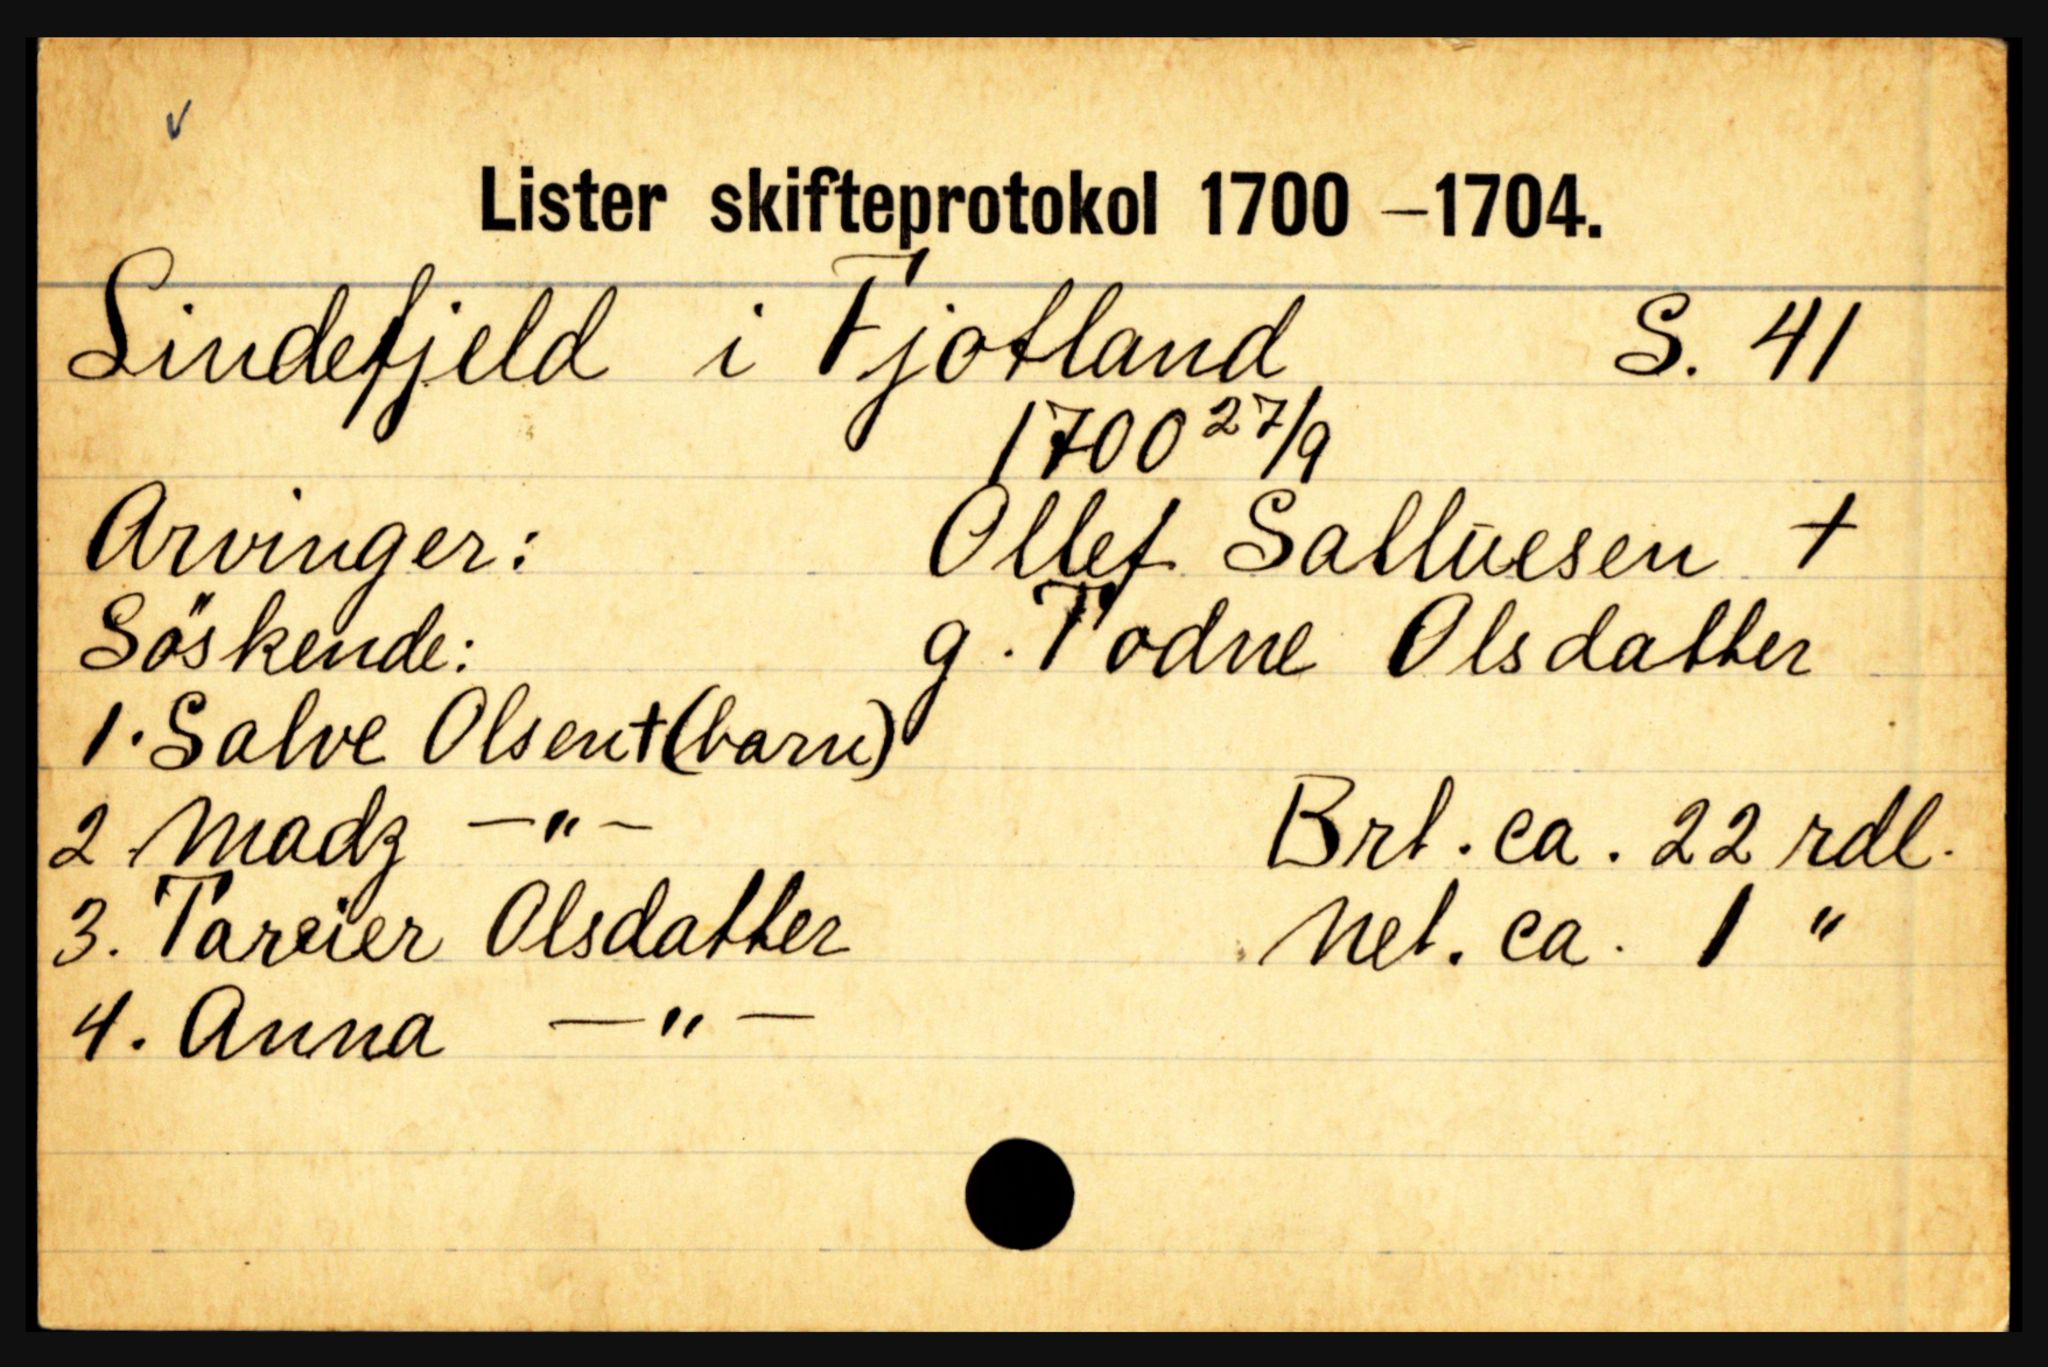 Lister skifteprotokol 1700 –1704.
Lindefjeld i Fjotland S. 41
1700 27/9
Arvinger: Ollef Salluesen +
Söskende: g. Todne Olsdatter
1. Salve Olsen + (barn)
2. Madz —"— Brt. ca. 22 rdl.
3. Tareier Olsdatter Net. ca. 1 "
4. Anna —"—